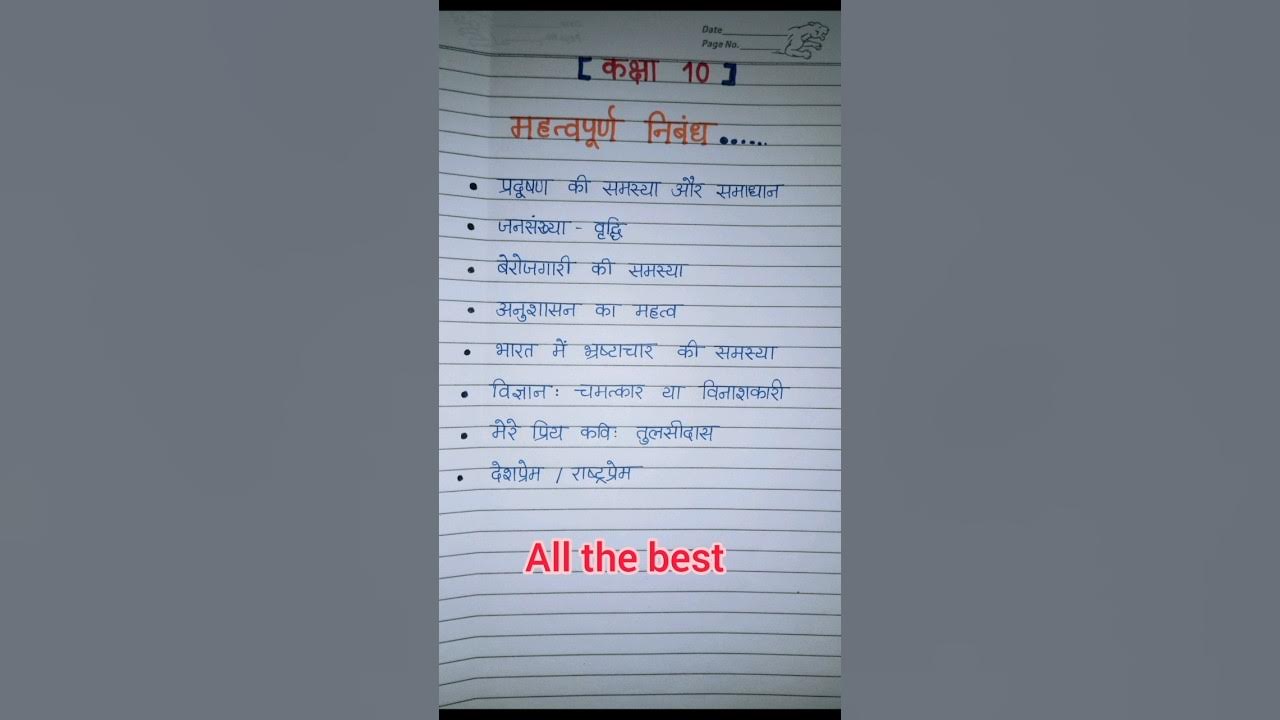 Date
Page No.
[ कक्षा 10 ]
महत्वपूर्ण निबंध ......
• प्रदूषण की समस्या और समाधान
• जनसंख्या - वृद्धि
• बेरोजगारी की समस्या
• अनुशासन का महत्व
• भारत में भ्रष्टाचार की समस्या
• विज्ञान : चमत्कार या विनाशकारी
• मेरे प्रिय कवि: तुलसीदास
• देशप्रेम / राष्ट्रप्रेम
All the best